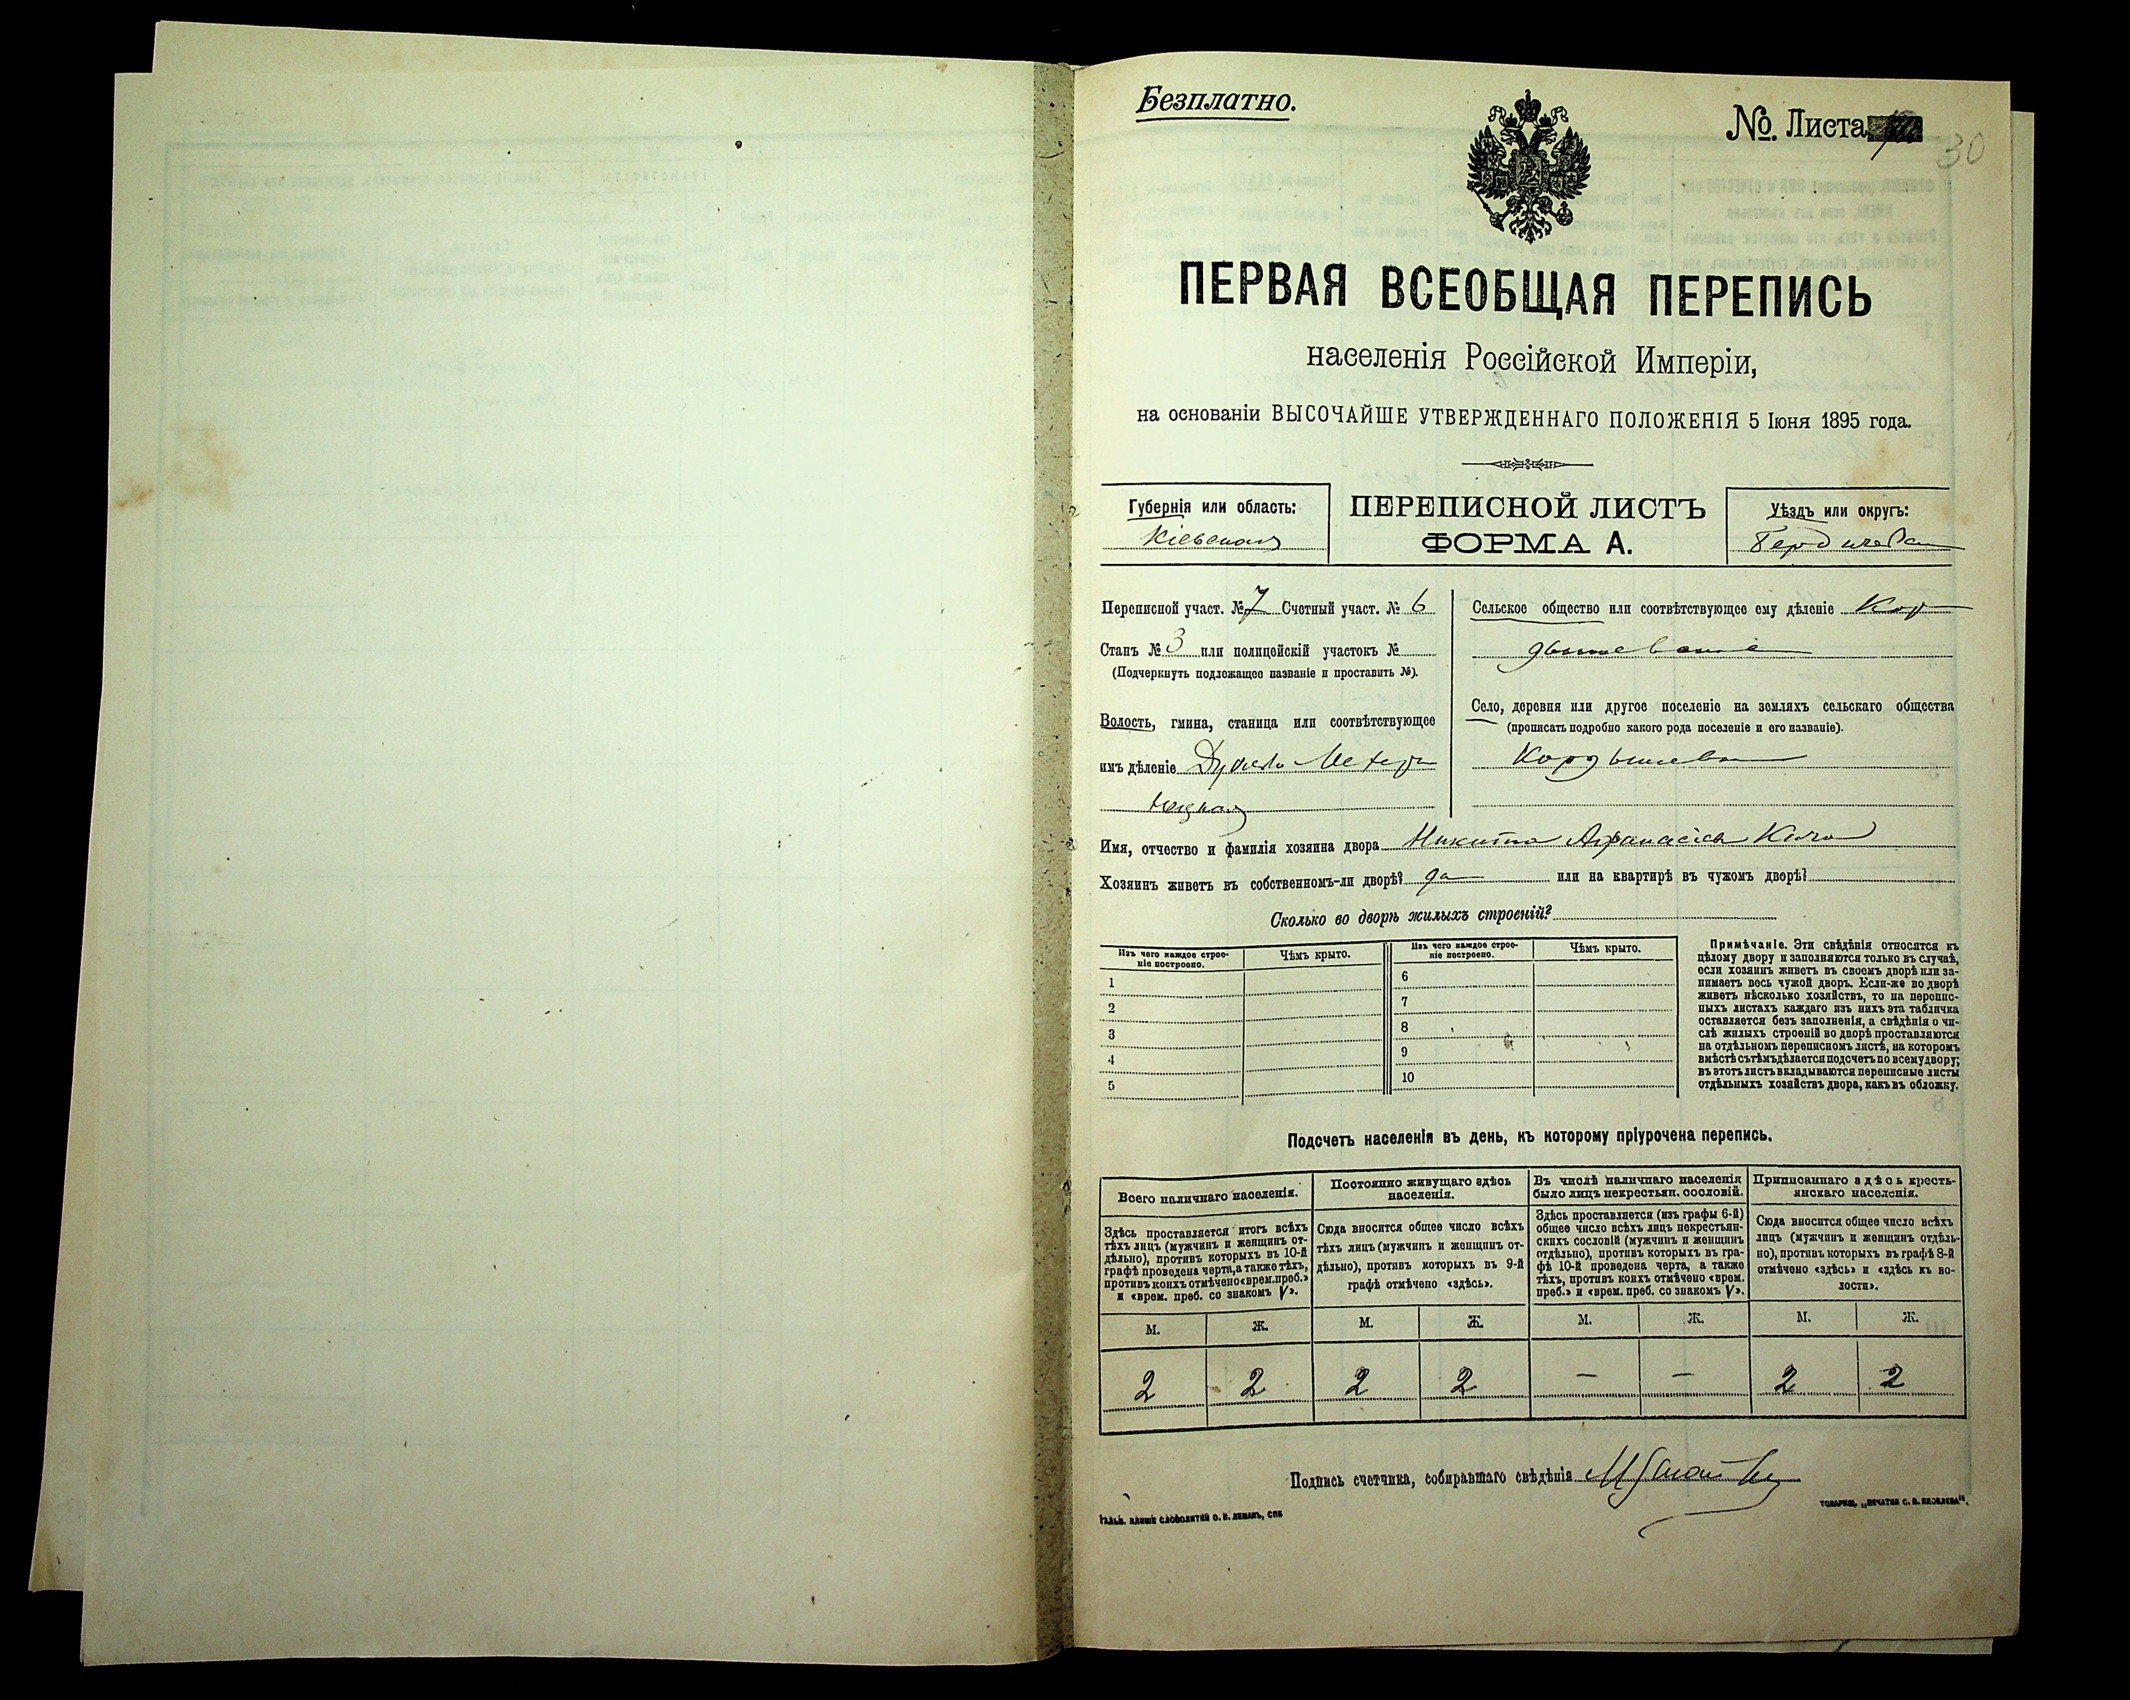 Безплатно.
№. Листа
30
ПЕРВАЯ ВСЕОБЩАЯ ПЕРЕПИСЬ
населенія Россійской Имперіи,
на основаніи ВЫСОЧАЙШЕ УТВЕРЖДЕННАГО ПОЛОЖЕНІЯ 5 Іюня 1895 года.
Губернія или область:
Кіевская
ПЕРЕПИСНОЙ ЛИСТЪ
ФОРМА А.
Уѣздъ или округъ:
Переписной участ. № 7 Счетный участ. № 6
Станъ № 3 или полицейскій участокъ №
(Подчеркнуть подлежащее названіе и проставить №).
Волость, гмина, станица или соотвѣтствующее
имъ дѣленіе
Сельское общество или соотвѣтствующее ему дѣленіе Кор
Село, деревня или другое поселеніе на земляхъ сельскаго общества
(прописать подробно какого рода поселеніе и его названіе).
Кордышевка
Имя, отчество и фамилія хозяина двора Никита Афанасіев
Хозяинъ живетъ въ собственномъ-ли дворѣ? да или на квартирѣ въ чужомъ дворѣ?
Сколько во дворѣ жилыхъ строеній?
Изъ чего каждое строе-
ніе построено.
Чѣмъ крыто.
1
2
3
4
5
Изъ чего каждое строе-
ніе построено.
Чѣмъ крыто.
6
7
8
9
10
Примѣчаніе. Эти свѣдѣнія относятся къ
цѣлому двору и заполняются только въ случаѣ,
если хозяинъ живетъ въ своемъ дворѣ или за-
нимаетъ весь чужой дворъ. Если-же во дворѣ
живетъ нѣсколько хозяйствъ, то на перепис-
ныхъ листахъ каждаго изъ нихъ эта табличка
оставляется безъ заполненія, а свѣдѣнія о чи-
слѣ жилыхъ строеній во дворѣ проставляются
на отдѣльномъ переписномъ листѣ, на которомъ
вмѣстѣ съ тѣмъ дѣлается подсчетъ по всему двору;
въ этотъ листъ вкладываются переписные листы
отдѣльныхъ хозяйствъ двора, какъ въ обложку.
Подсчетъ населенія въ день, къ которому пріурочена перепись.
Всего наличнаго населенія.
Здѣсь проставляется итогъ всѣхъ
тѣхъ лицъ (мужчинъ и женщинъ от-
дѣльно), противъ которыхъ въ 10-й
графѣ проведена черта, а также тѣхъ,
противъ коихъ отмѣчено «врем. преб.»
и «врем. преб. со знакомъ V».
Постоянно живущаго здѣсь
населенія.
Сюда вносится общее число всѣхъ
тѣхъ лицъ (мужчинъ и женщинъ от-
дѣльно), противъ которыхъ въ 9-й
графѣ отмѣчено «здѣсь».
Въ числѣ наличнаго населенія
было лицъ некрестьян. сословій.
Здѣсь проставляется (изъ графы 6-й)
общее число всѣхъ лицъ некрестьян-
скихъ сословій (мужчинъ и женщинъ
отдѣльно), противъ которыхъ въ гра-
фѣ 10-й проведена черта, а также
тѣхъ, противъ коихъ отмѣчено «врем.
преб.» и «врем. преб. со знакомъ V».
Приписаннаго здѣсь кресть-
янскаго населенія.
Сюда вносится общее число всѣхъ
лицъ (мужчинъ и женщинъ отдѣль-
но), противъ которыхъ въ графѣ 8-й
отмѣчено «здѣсь» и «здѣсь къ во-
лости».
М. Ж. М. Ж. М. Ж. М. Ж.
2 2 2 2 — — 2 2
Подпись счетчика, собиравшаго свѣдѣнія
ГАЛЬВ. КЛИШЕ СЛОВОЛИТНИ О. И. ЛЕМАНЪ, СПБ
ТОВАРИЩ. „ПЕЧАТНЯ С. П. ЯКОВЛЕВА".